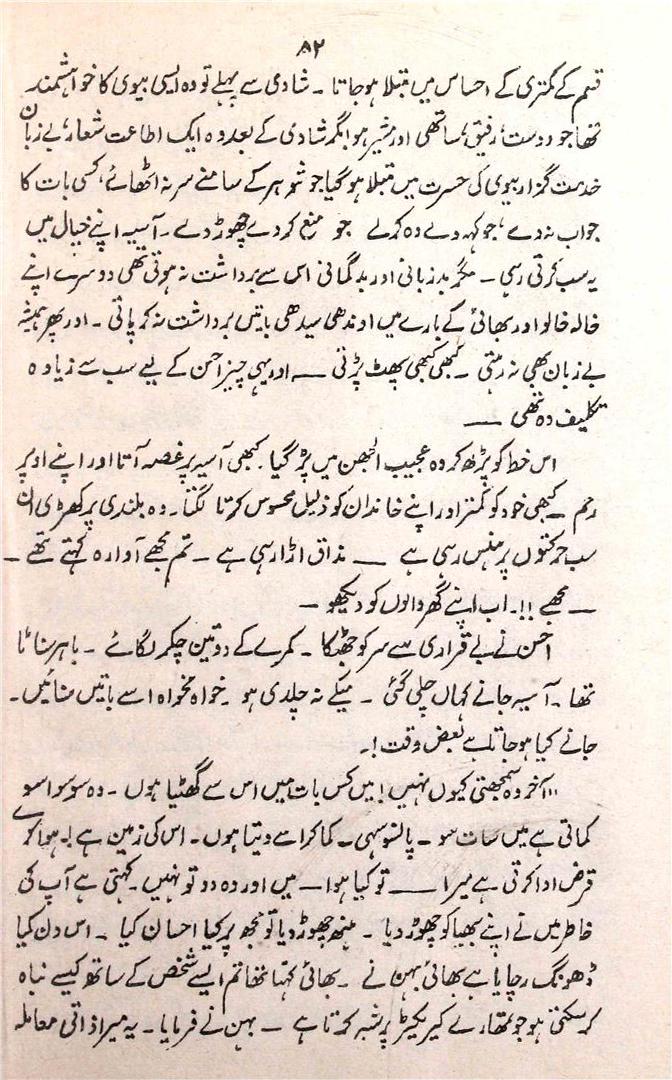 ۸۲
قسم کے کمتری کے احساس میں مبتلا ہو جاتا ۔ شادی سے پہلے تو وہ ایسی بیوی کا خواہشمند
تھا جو دوست، رفیق، ساتھی اور مشیر ہو، مگر شادی کے بعد وہ ایک اطاعت شعار، بے زبان
خدمت گزار بیوی کی حسرت میں مبتلا ہو گیا جو شوہر کے سامنے سر نہ اٹھائے، کسی بات کا
جواب نہ دے، جو کہہ دے وہ کرلے جو منع کردے چھوڑ دے ۔ آسیہ اپنے خیال میں
یہ سب کرتی رہی ۔ مگر بدزبانی اور بدگمانی اس سے برداشت نہ ہوتی تھی دوسرے اپنے
خالہ خالو اور بھائی کے بارے میں اوندھی سیدھی باتیں برداشت نہ کر پاتی ۔ اور پھر ہمیشہ
بے زبان بھی نہ رہتی ۔ کبھی کبھی پھٹ پڑتی ــــ اور یہی چیز احسن کے لیے سب سے زیادہ
تکلیف دہ تھی ــــ
اس خط کو پڑھ کر وہ عجیب الجھن میں پڑ گیا ۔ کبھی آسیہ پر غصہ آتا اور اپنے اوپر
رحم ۔ کبھی خود کو کمتر اور اپنے خاندان کو ذلیل محسوس کرتا لگتا ۔ وہ بلندی پر کھڑی ان
سب حرکتوں پر ہنس رہی ہے ــــ مذاق اڑا رہی ہے ۔ تم مجھے آوارہ کہتے تھے ۔
ــ مجھے !! ۔ اب اپنے گھر والوں کو دیکھو ــ
احسن نے بے قراری سے سر کو جھٹکا ۔ کمرے کے دو تین چکر لگائے ۔ باہر سناٹا
تھا ۔ آسیہ جانے کہاں چلی گئی ۔ میکے نہ چلدی ہو ۔ خواہ مخواہ اسے باتیں سنائیں ۔
جانے کیا ہو جاتا ہے بعض وقت ! ۔
"آخر وہ سمجھتی کیوں نہیں ! میں کس بات میں اس سے گھٹیا ہوں ۔ وہ سو سوا سو
کماتی ہے میں سات سو ۔ پانسو سہی ۔ کما کر اسے دیتا ہوں ۔ اس کی زمین ہے ! ۔ ہوا کرے
قرض ادا کرتی ہے میرا ــــ تو کیا ہوا ــ میں اور وہ دو تو نہیں ۔ کہتی ہے آپ کی
خاطر میں نے اپنے بھیا کو چھوڑ دیا ۔ ہنھ چھوڑ دیا تو مجھ پر کیا احسان کیا ۔ اس دن کیا
ڈھونگ رچایا ہے بھائی بہن نے ۔ بھائی کہتا تھا تم ایسے شخص کے ساتھ کیسے نباہ
کر سکتی ہو جو تمھارے کیریکٹر پر شبہ کرتا ہے ۔ بہن نے فرمایا ۔ یہ میرا ذاتی معاملہ